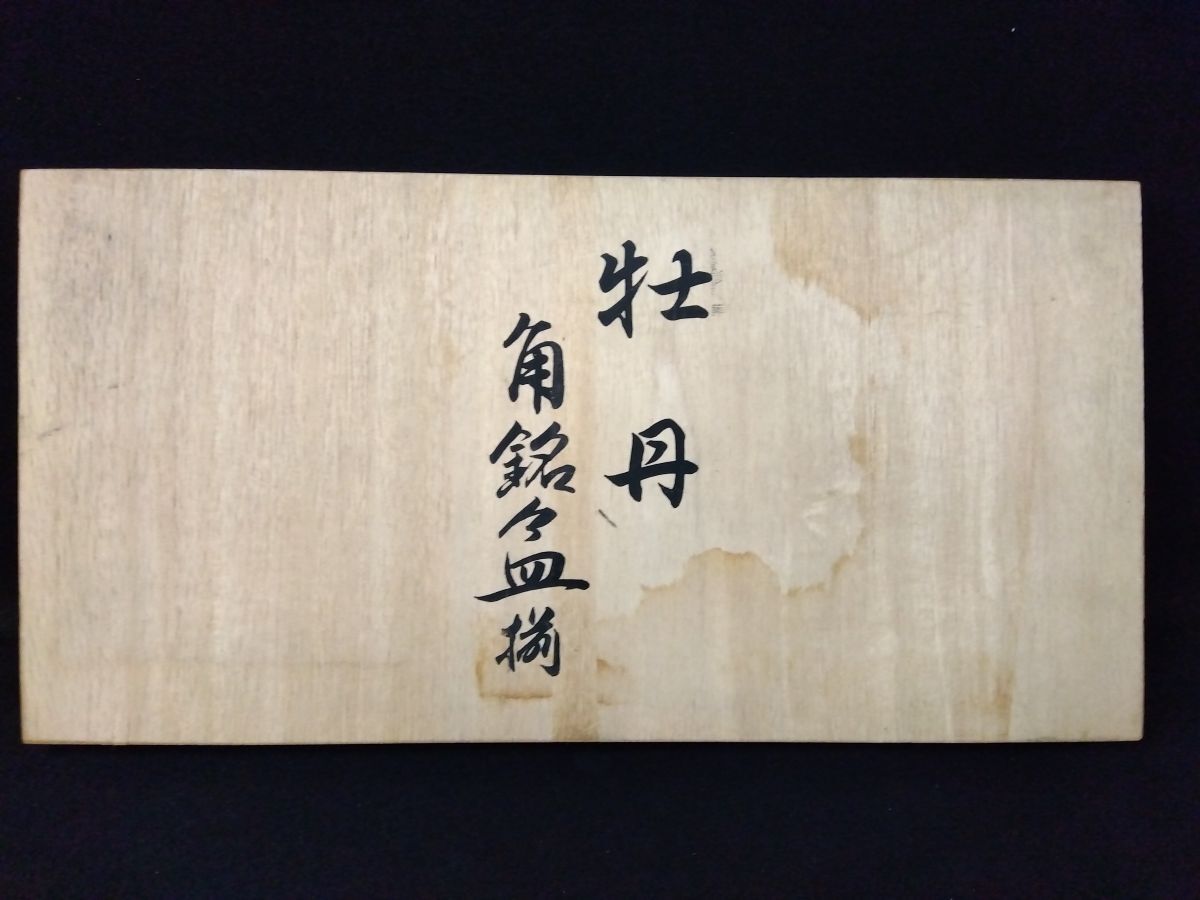 牡丹
角銘々皿揃